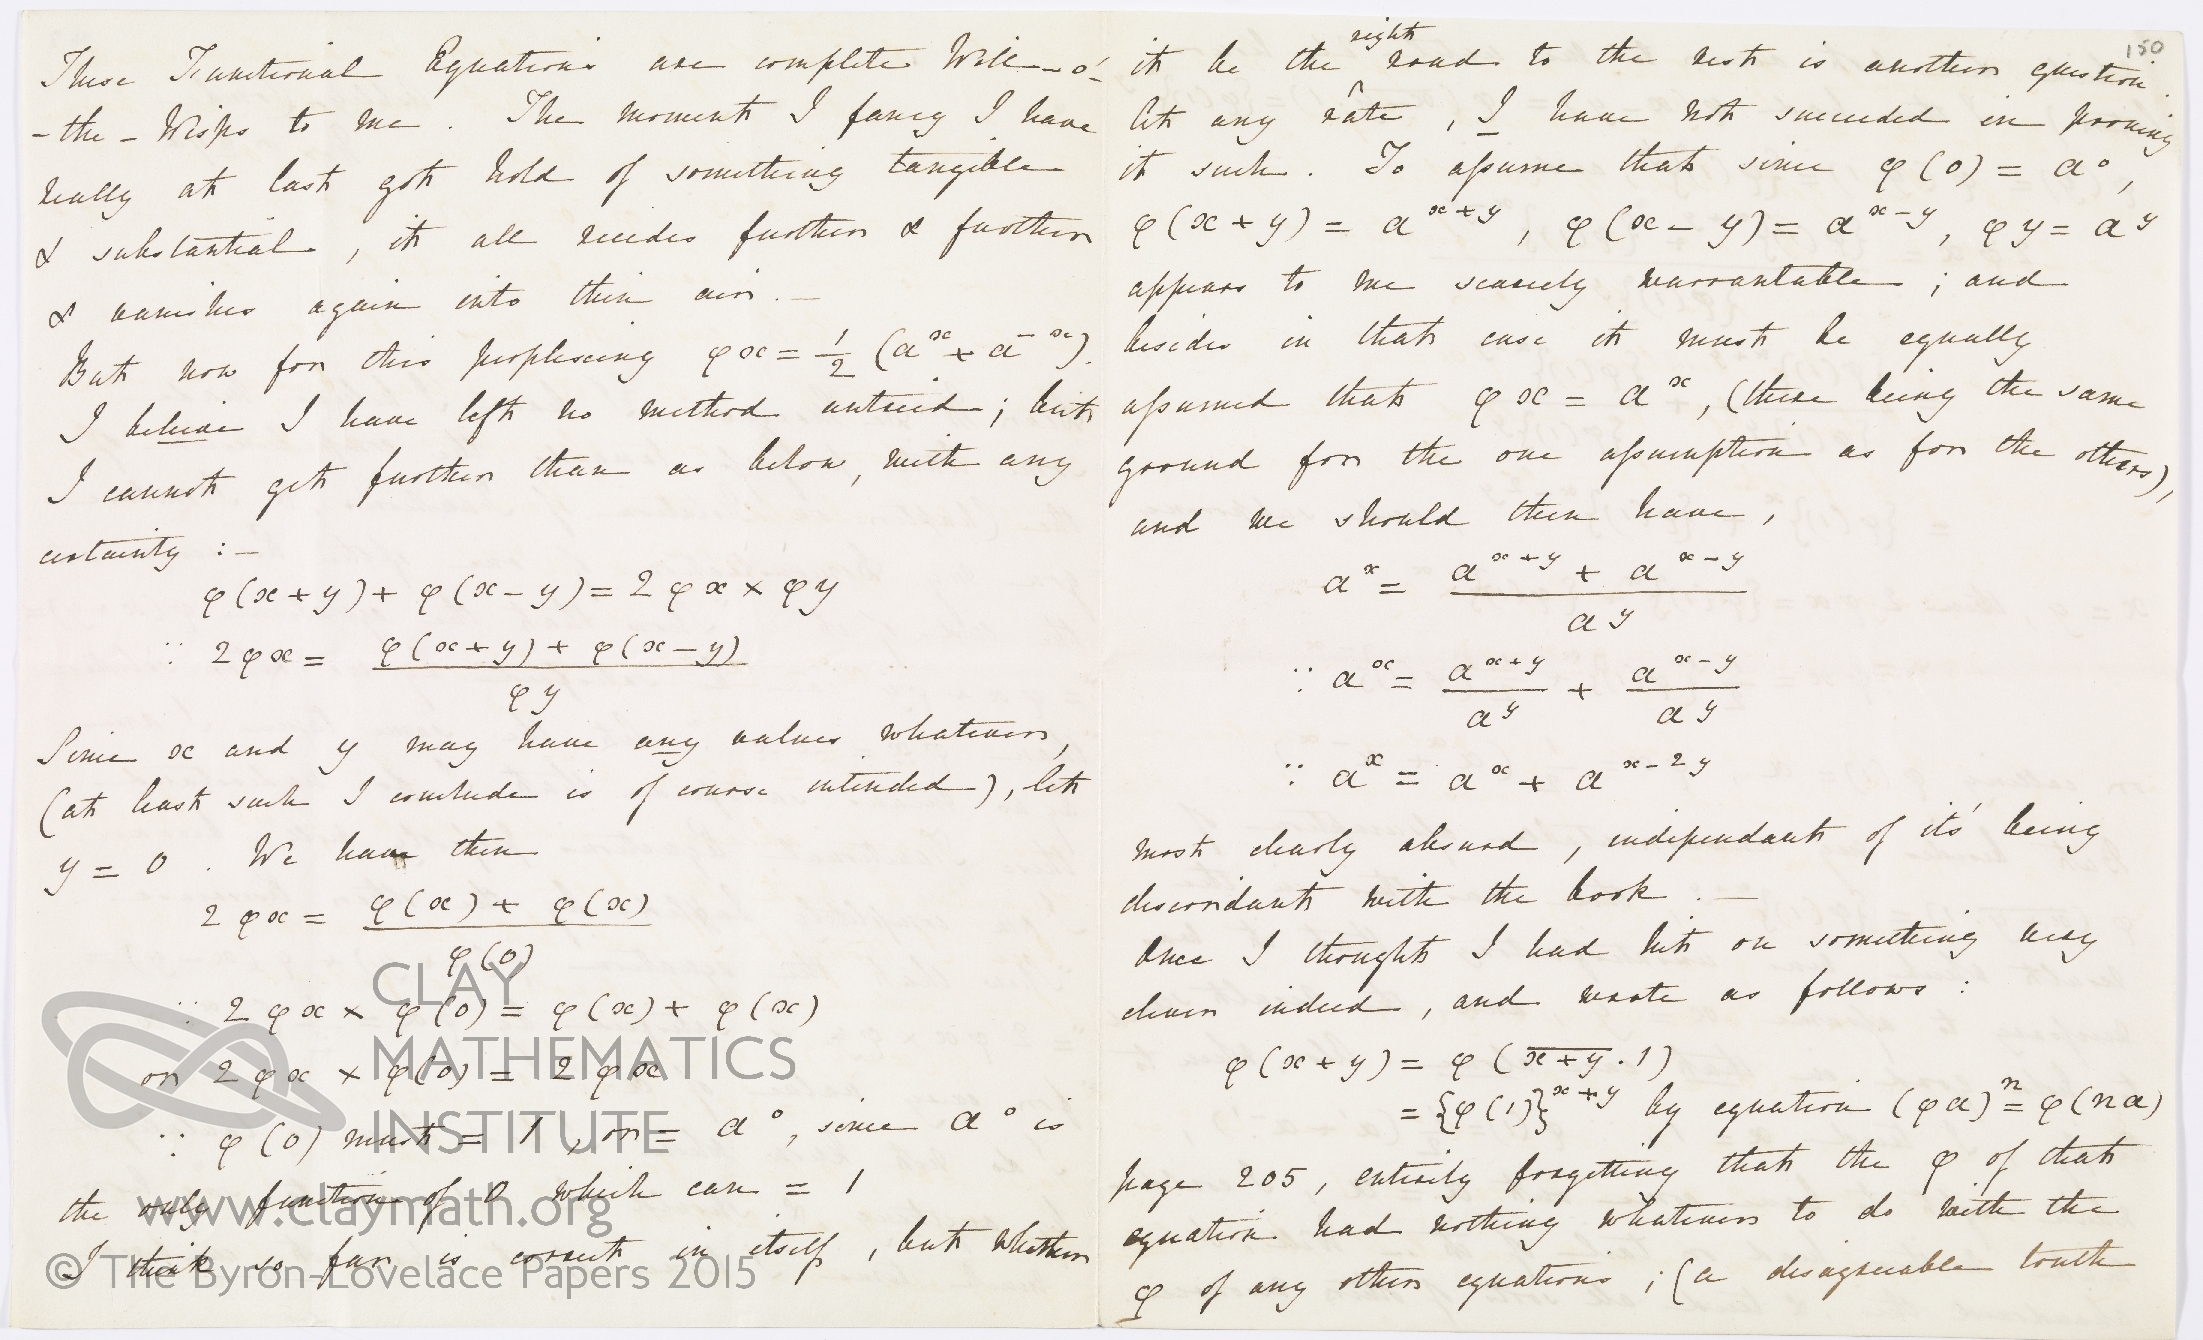 These Functional Equations are complete Will-o'-
-the-Wisps to me. The moment I fancy I have
really at last got hold of something tangible
& substantial, it all recedes further & further
& vanishes again into thin air. —
But now for this perplexing φx = 1/2 (a^x + a^-x).
I believe I have left no method untried; but
I cannot get further than as below, with any
certainty :—
φ(x + y) + φ(x − y) = 2 φx × φy
∵ 2φx = (φ(x+y) + φ(x−y)) / φy
Since x and y may have any values whatever,
(at least such I conclude is of course intended), let
y = 0. We have then
2 φx = (φ(x) + φ(x)) / φ(0)
∵ 2 φx × φ(0) = φ(x) + φ(x)
or 2 φx × φ(0) = 2 φx
∵ φ(0) must = 1, or = a°, since a° is
the only function of 0 which can = 1
I think so far is correct in itself, but whether
150
it be the right road to the rest is another question.
At any rate, I have not succeeded in proving
it such. To assume that since φ(0) = a°,
φ(x + y) = a^x+y, φ(x − y) = a^x−y, φy = a^y
appears to me scarcely warrantable; and
besides in that case it must be equally
assumed that φx = a^x, (there being the same
ground for the one assumption as for the others),
and we should then have,
a^x = (a^x+y + a^x−y) / a^y
∵ a^x = a^x+y / a^y + a^x−y / a^y
∵ a^x = a^x + a^x−2y
most clearly absurd, independant of it's being
discordant with the book. —
Once I thought I had hit on something very
clever indeed, and wrote as follows:
φ(x + y) = φ(x + y . 1)
= {φ(1)}^x+y by equation (φa)^n = φ(na)
page 205, entirely forgetting that the φ of that
equation had nothing whatever to do with the
φ of any other equations; (a disagreeable truth
CLAY
MATHEMATICS
INSTITUTE
www.claymath.org
© The Byron-Lovelace Papers 2015